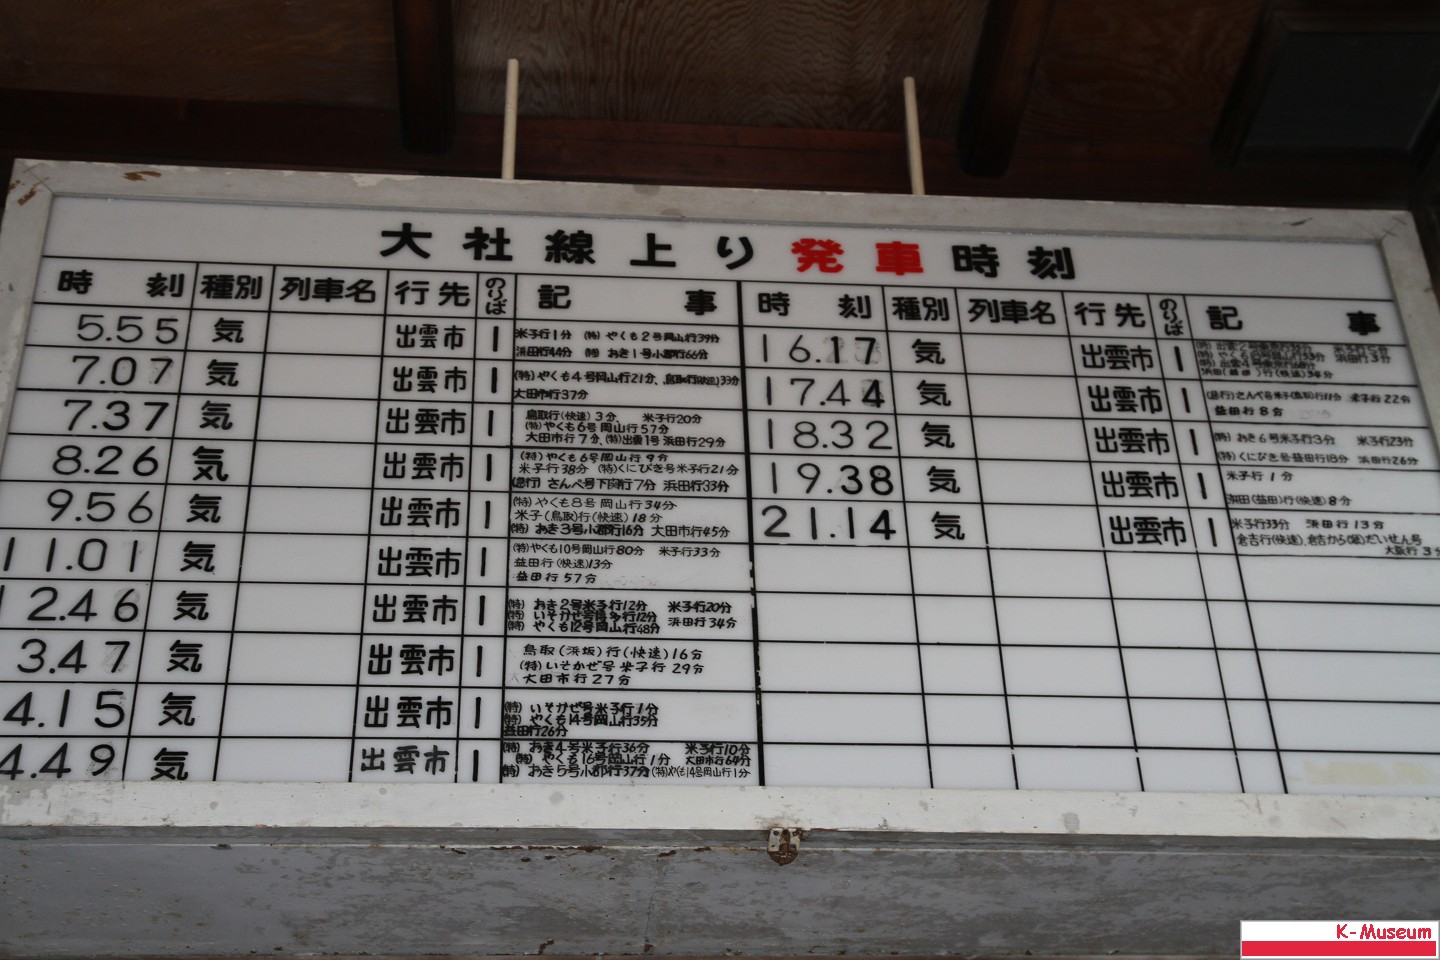 大社線上り発車時刻
時刻 種別 列車名 行先 のりば 記事
5.55 気 出雲市 1 米子行1分 (特)やくも2号岡山行39分
浜田行44分 (特)おき1号小郡行66分
7.07 気 出雲市 1 (特)やくも4号岡山行21分、鳥取行(快速)33分
大田市行37分
7.37 気 出雲市 1 鳥取行(快速)3分、 米子行20分
(特)やくも6号岡山行57分
大田市行7分、(特)出雲1号浜田行29分
8.26 気 出雲市 1 (特)やくも6号岡山行9分
米子行38分 (特)くにびき号米子行21分
(急行)さんべ号下関行7分 浜田行33分
9.56 気 出雲市 1 (特)やくも8号岡山行34分
米子(鳥取)行(快速)18分
(特)おき3号小郡行16分 大田市行45分
11.01 気 出雲市 1 (特)やくも10号岡山行80分 米子行33分
益田行(快速)13分
益田行57分
2.46 気 出雲市 1 (特)おき2号米子行12分 米子行20分
(特)いそかぜ号博多行12分 浜田行34分
(特)やくも12号岡山行48分
3.47 気 出雲市 1 鳥取(浜坂)行(快速)16分
(特)いそかぜ号米子行29分
大田市行27分
4.15 気 出雲市 1 (特)いそかぜ号米子行1分
(特)やくも14号岡山行35分
益田行26分
4.49 気 出雲市 1 (特)おき4号米子行36分 米子行10分
(特)やくも16号岡山行1分 大田市行64分
(特)おき5号小郡行37分(特)やくも14号岡山行1分
時刻 種別 列車名 行先 のりば 記事
16.17 気 出雲市 1
浜田(益田)行(快速)34分
17.44 気 出雲市 1 (急行)さんべ号米子(鳥取)行11分 米子行22分
益田行8分
18.32 気 出雲市 1 (特)おき6号米子行3分 米子行23分
(特)くにびき号益田行18分 浜田行26分
19.38 気 出雲市 1 米子行1分
浜田(益田)行(快速)8分
21.14 気 出雲市 1 米子行33分 浜田行13分
倉吉行(快速)、倉吉から(急)だいせん号
大阪行3分
K-Museum